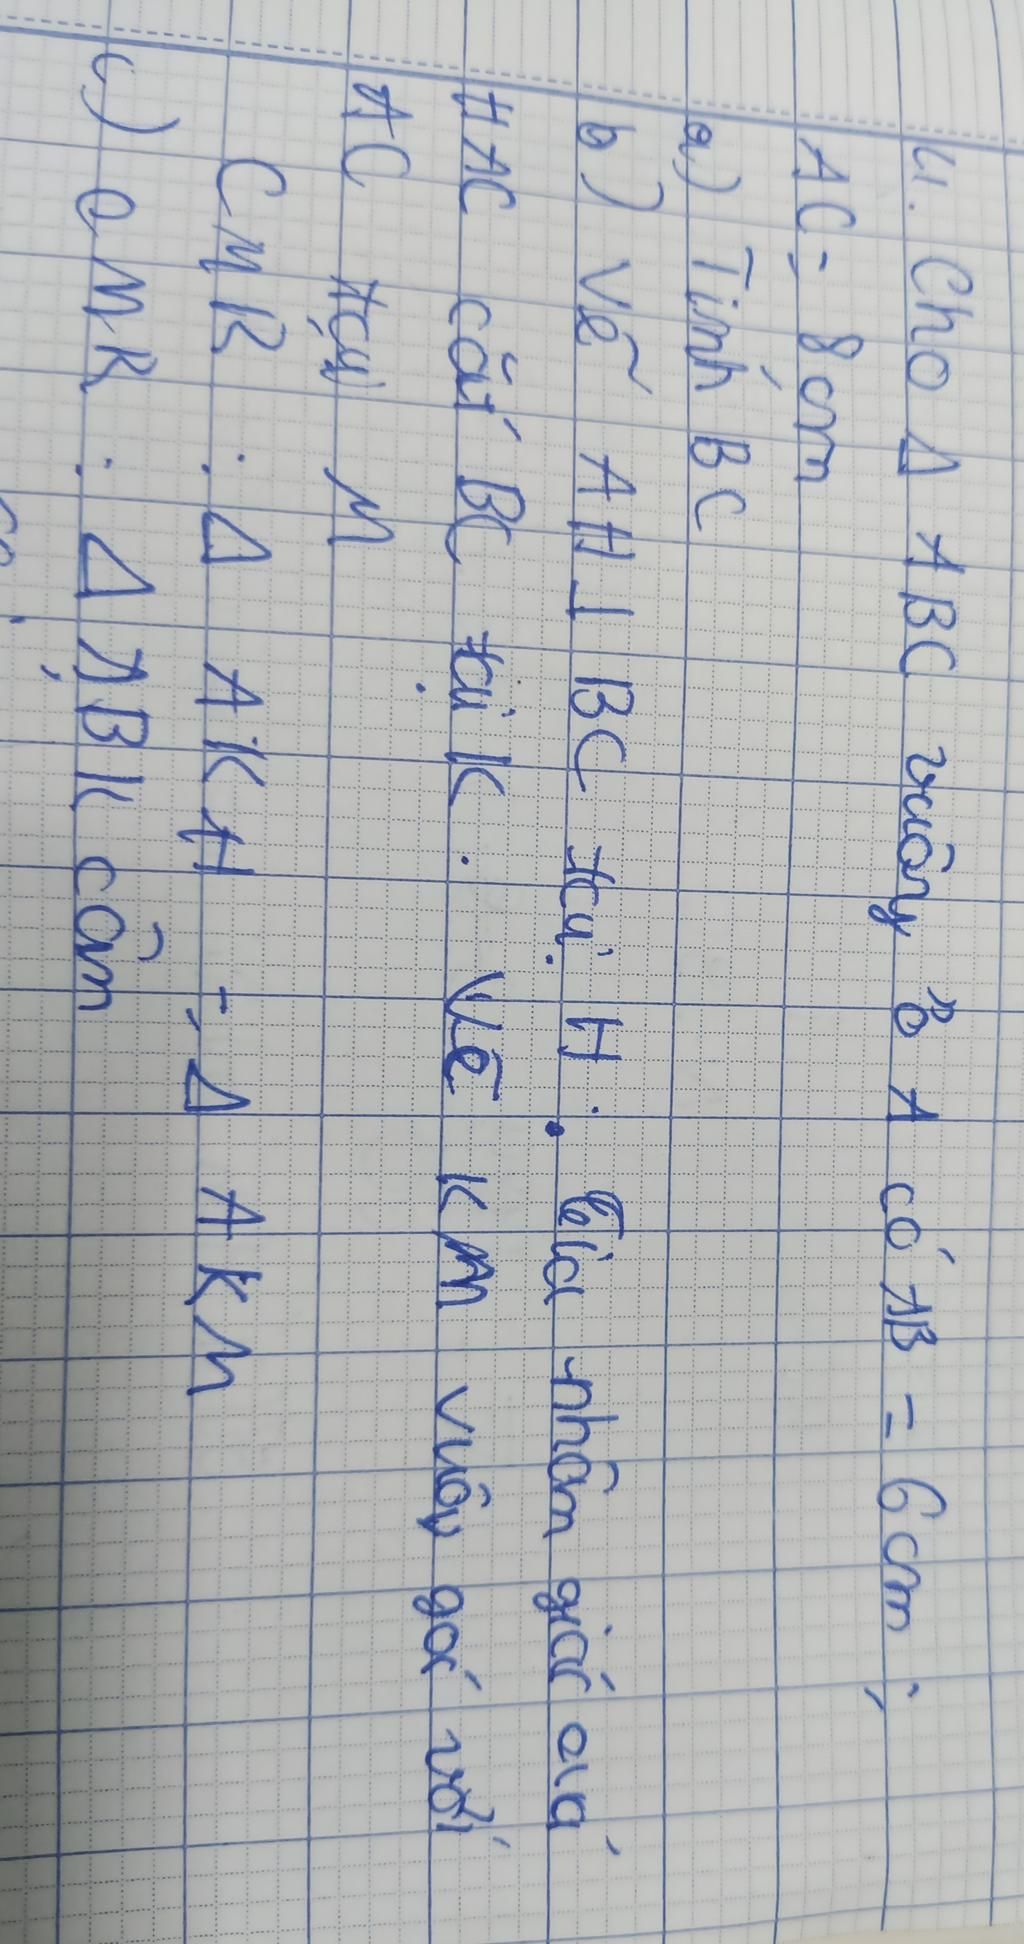 4. Cho Δ ABC vuông ở A có AB = 6cm ;
AC = 8cm
a) Tính BC
b) Vẽ AH ⊥ BC tại H. tia nhân giác của
HAC cắt BC tại K. Vẽ KM vuông gó với
AC tại M
CMR : Δ AKH = Δ AKM
c) CMR : Δ ABK cân